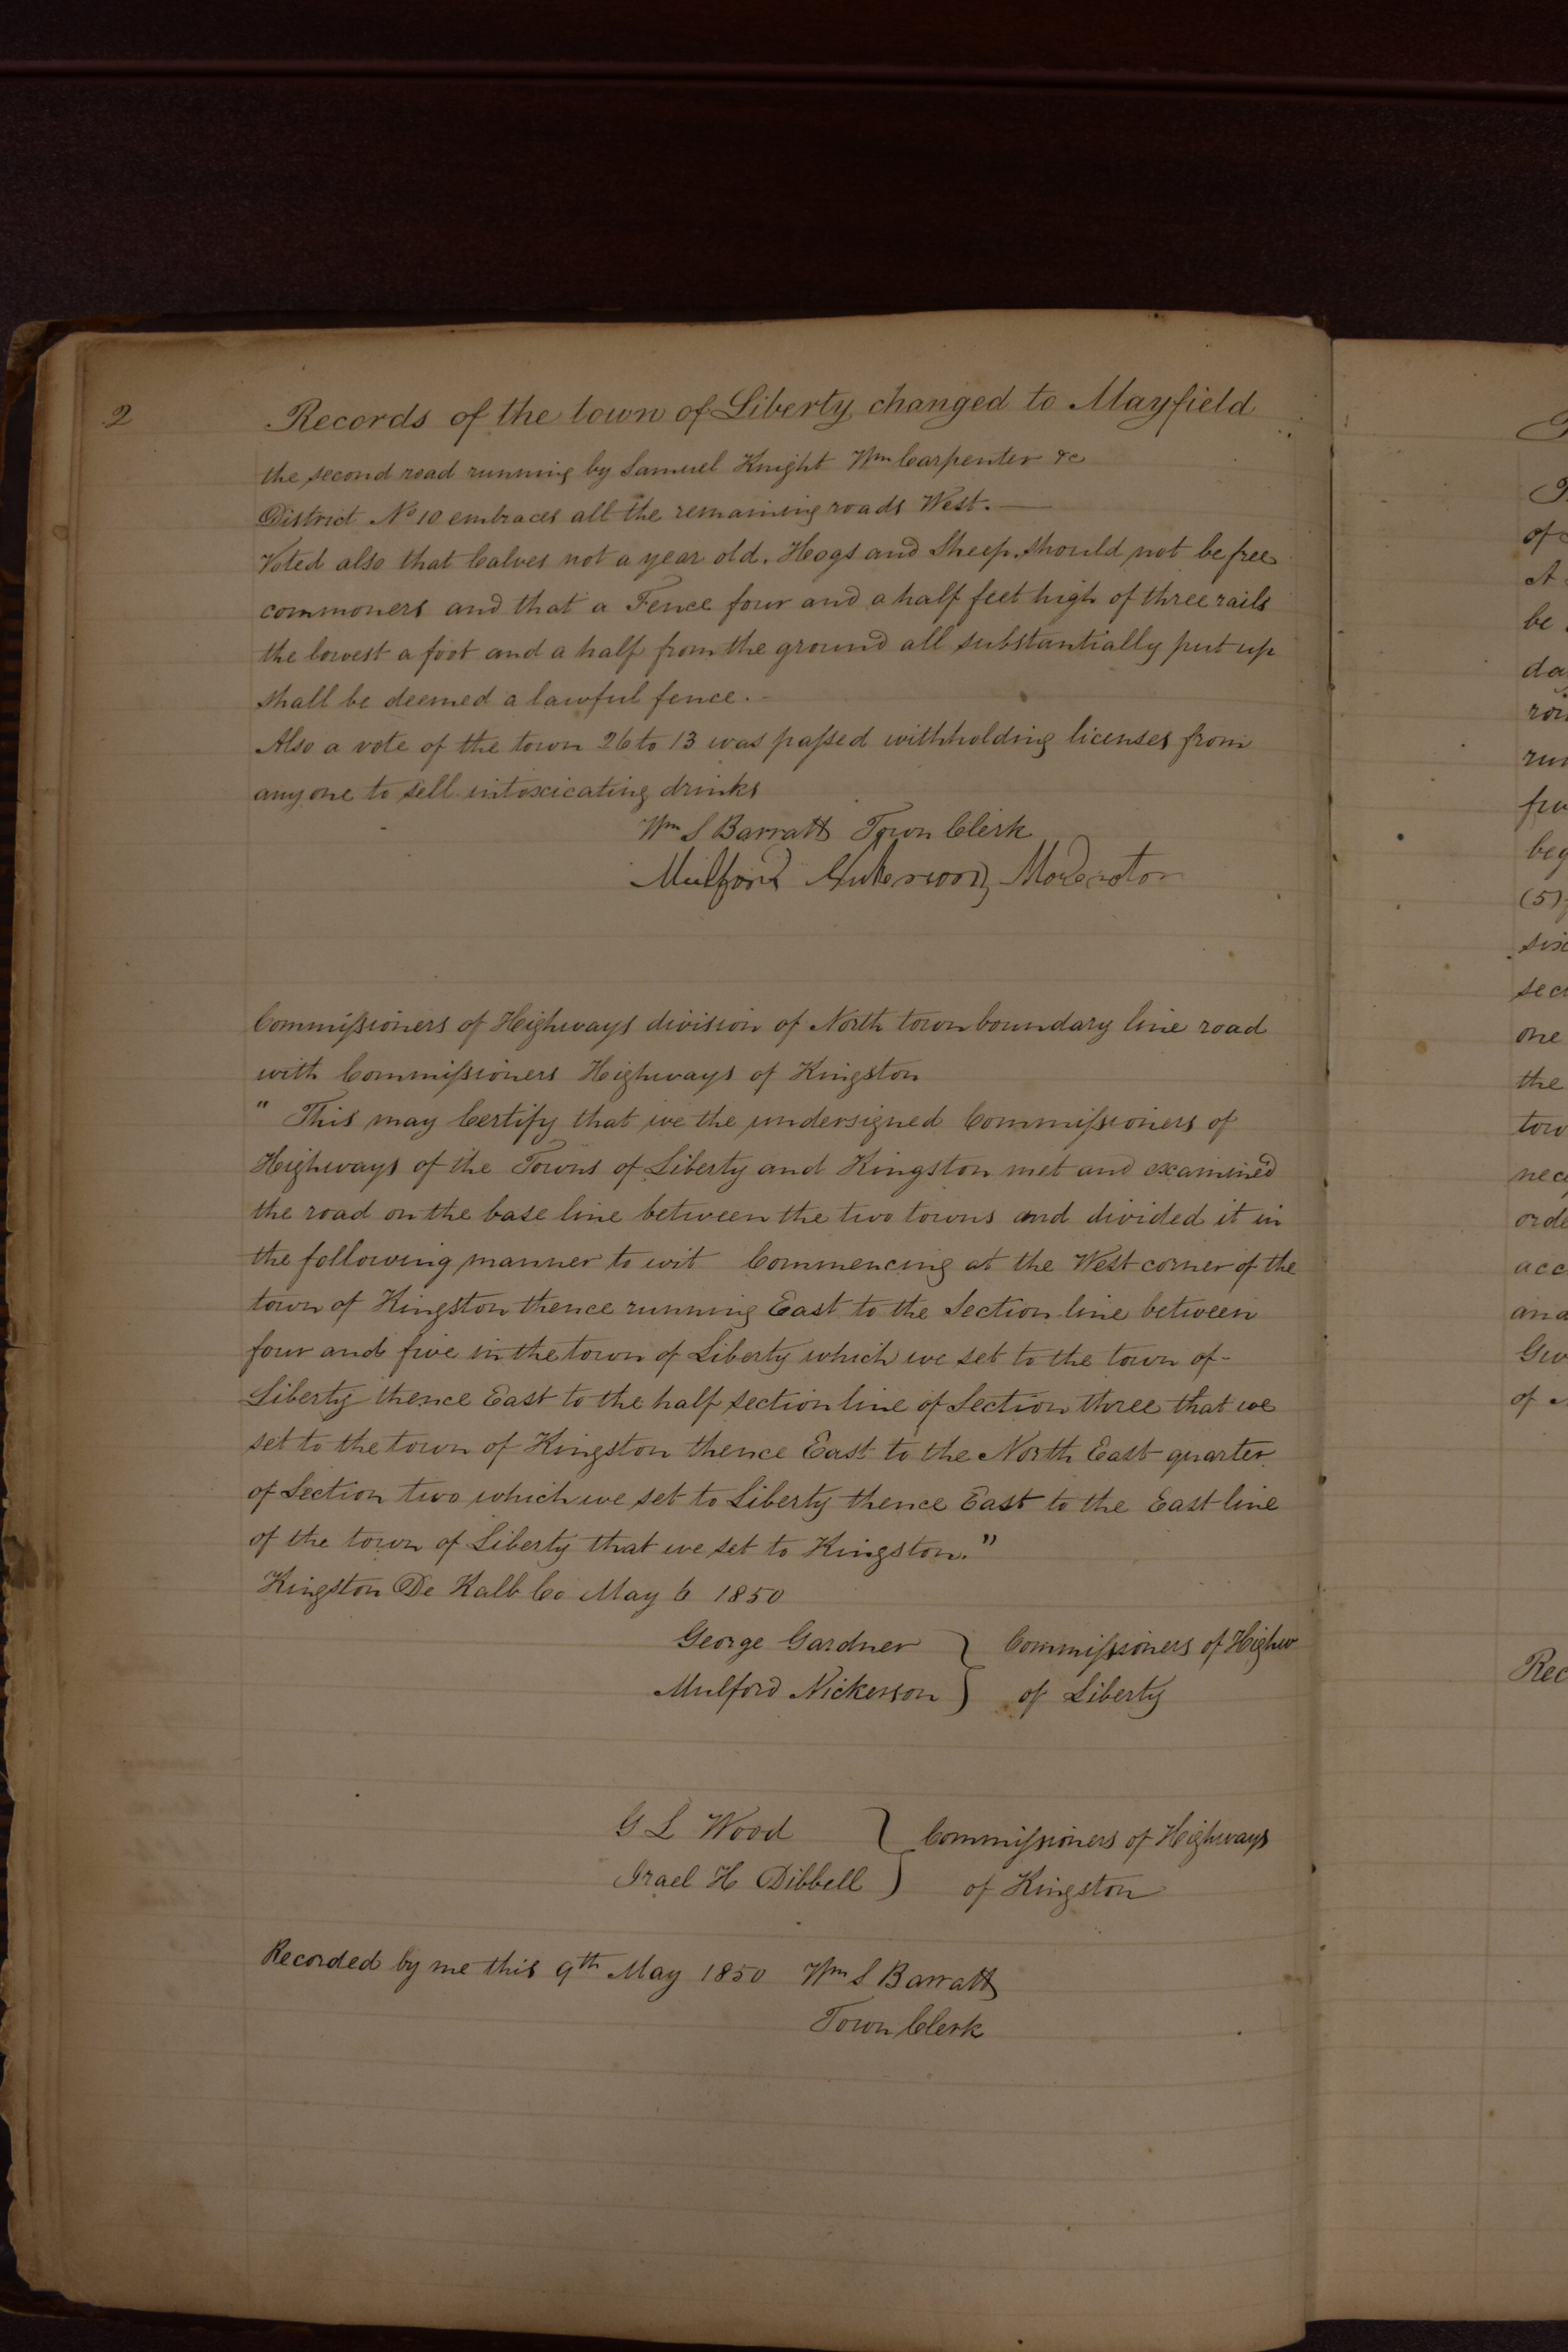 2
Records of the town of Liberty changed to Mayfield
the second road running by Samuel Knight Wm Carpenter &c
District No 10 embraces all the remaining roads West. —
Voted also that Calves not a year old. Hogs and Sheep, should not be free
commoners and that a Fence four and a half feet high of three rails
the lowest a foot and a half from the ground all substantially put up
shall be deemed a lawful fence. -
Also a vote of the town 26 to 13 was passed withholding licenses from
any one to sell intoxicating drinks
Wm S Barratt Town Clerk
Mulford Nickerson, Moderator
Commissioners of Highways division of North town boundary line road
with Commissioners Highways of Kingston
" This may Certify that we the undersigned Commissioners of
Highways of the Towns of Liberty and Kingston met and examined
the road on the base line between the two towns and divided it in
the following manner to wit Commencing at the West corner of the
town of Kingston thence running East to the Section line between
four and five in the town of Liberty which we set to the town of-
Liberty thence East to the half section line of Section three that we
set to the town of Kingston thence East to the North East quarter
of Section two which we set to Liberty thence East to the East line
of the town of Liberty that we set to Kingston."
Kingston De Kalb Co May 6 1850
George Gardner } Commissioners of Highw
Mulford Nickerson } of Liberty
G L Wood } Commissioners of Highways
Irael H Dibbell } of Kingston
Recorded by me this 9th May 1850 Wm S Barratt
Town Clerk
of
A
be
da
run
beg
(5)
one
the
tow
acc
of
Rec